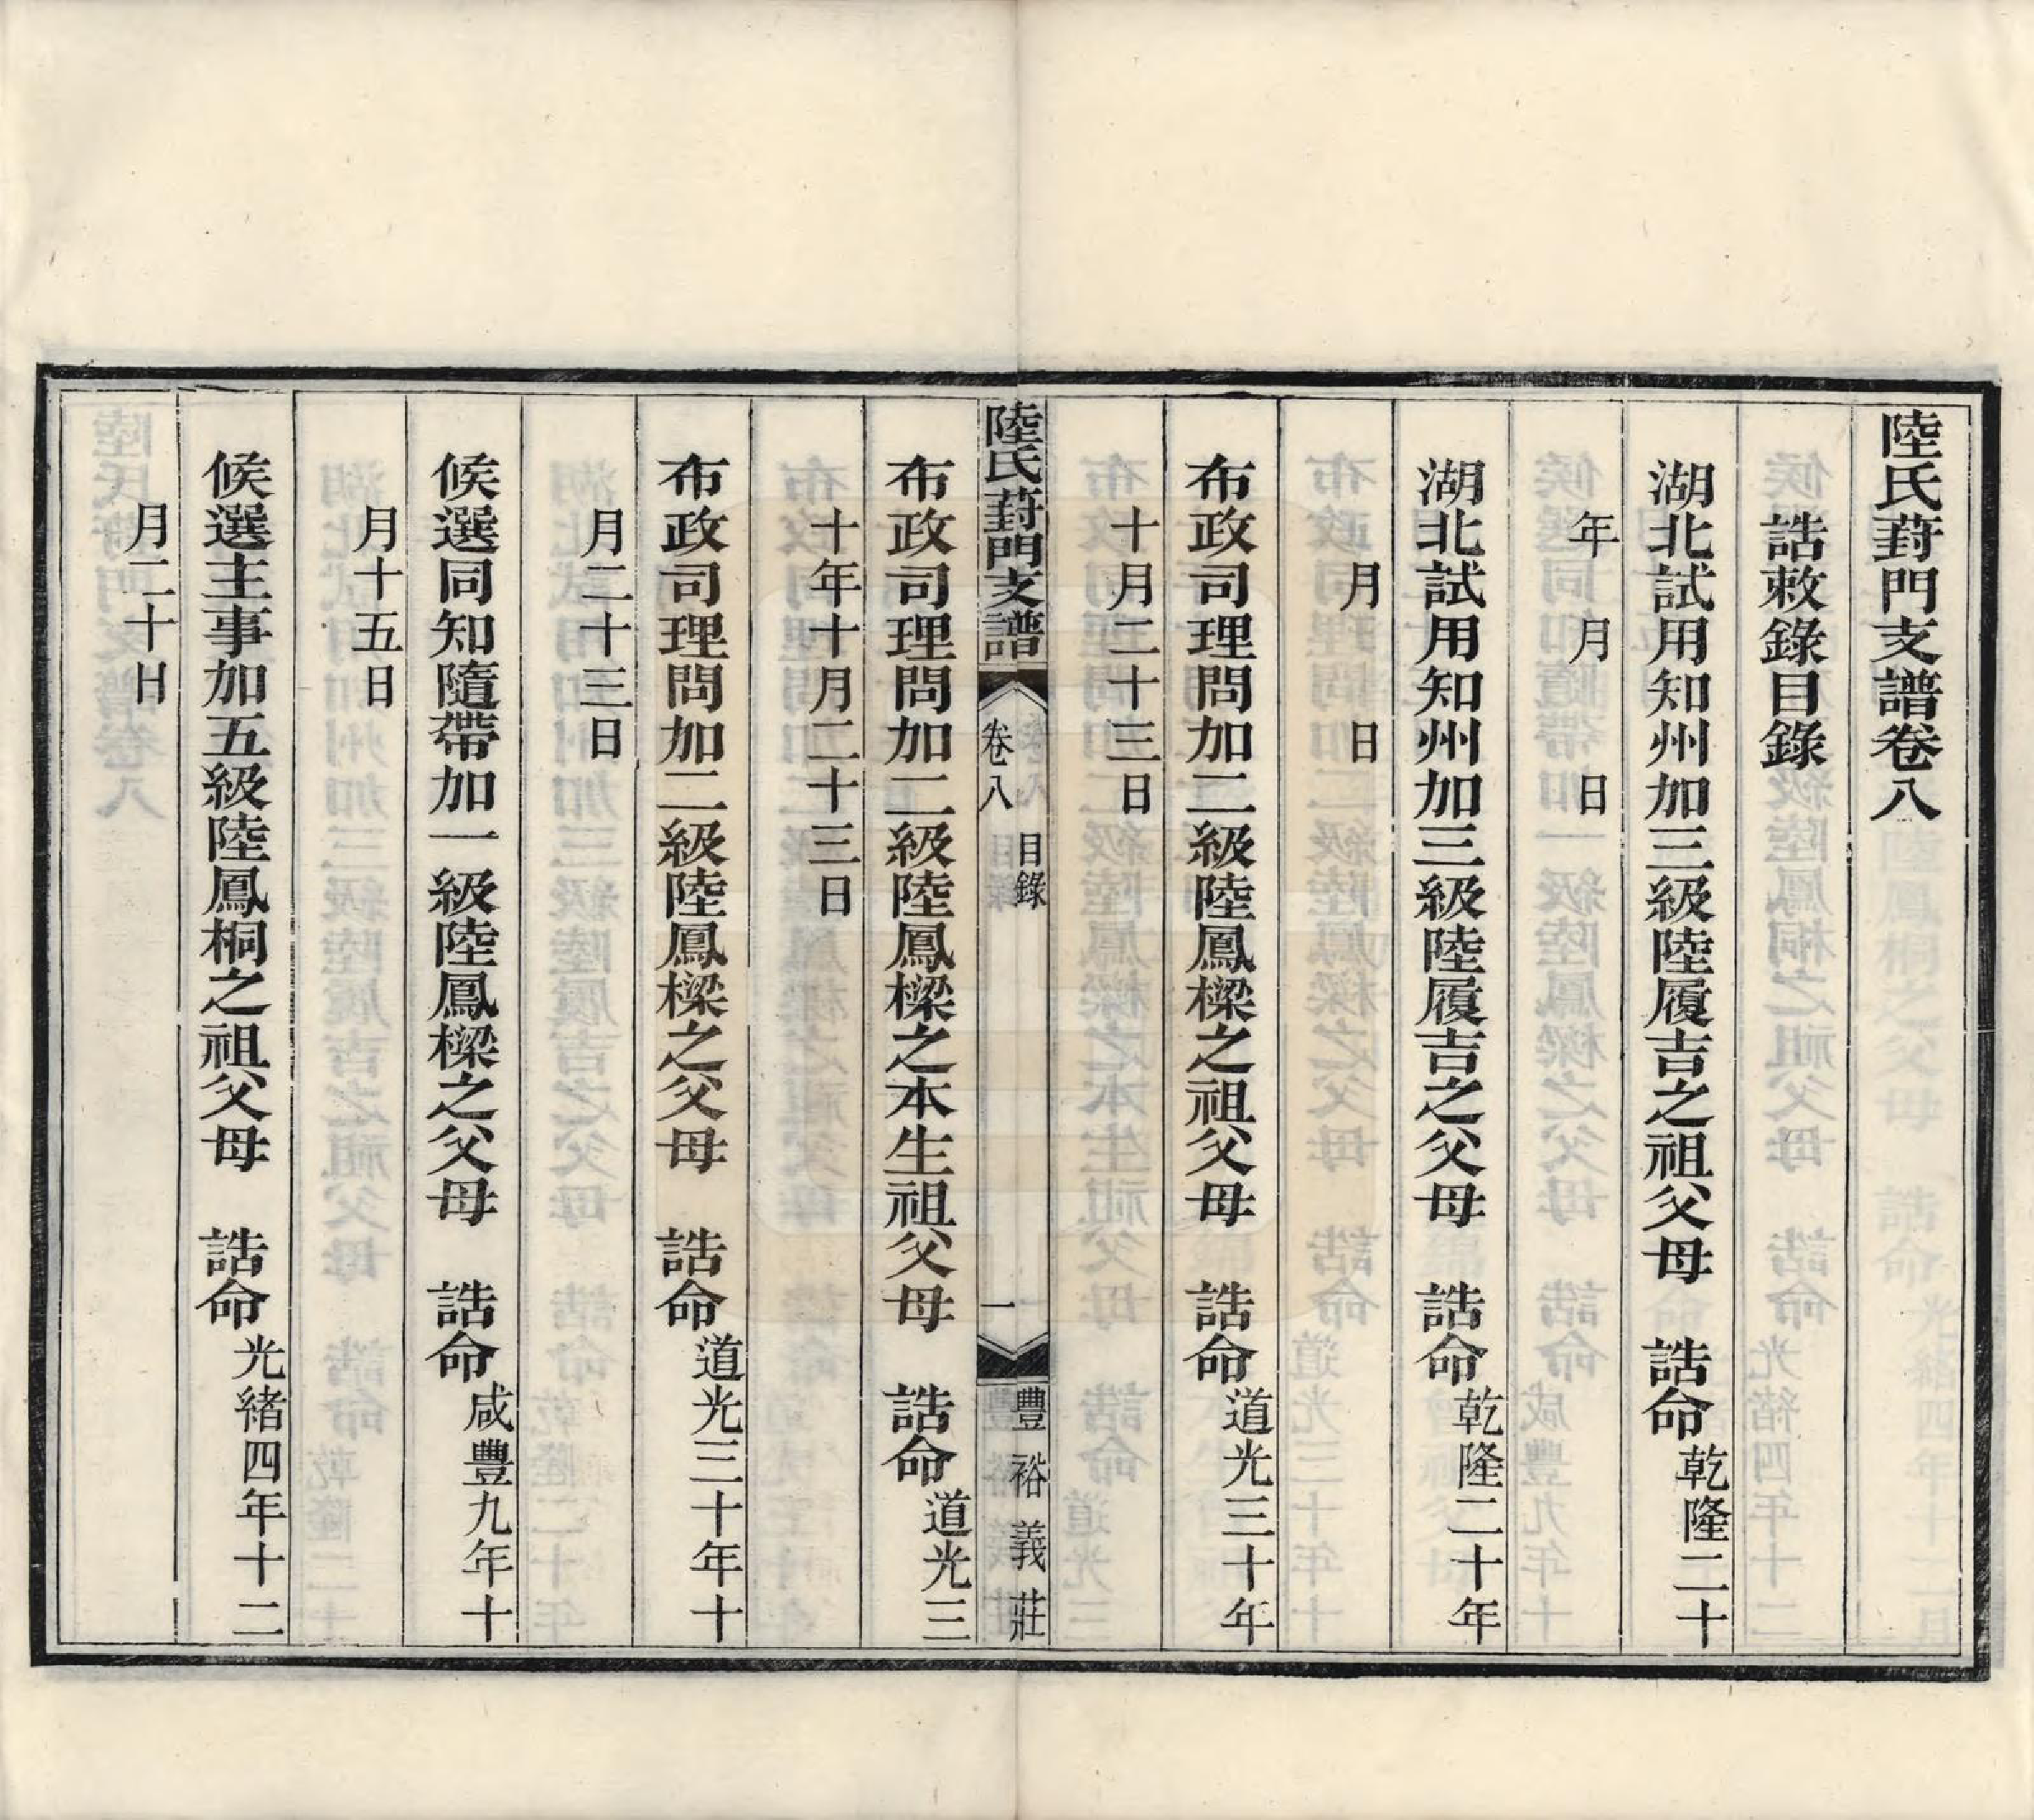 陸氏葑門支譜卷八
誥敕錄目錄
湖北試用知州加三級陸履吉之祖父母　誥命乾隆二十
年　月　　日
湖北試用知州加三級陸履吉之父母　誥命乾隆二十年
月　　日
布政司理問加二級陸鳳樑之祖父母　誥命道光三十年
十月二十三日
陸氏葑門支譜　卷八　目錄　一　豐裕義莊
布政司理問加二級陸鳳樑之本生祖父母　誥命道光三
十年十月二十三日
布政司理問加二級陸鳳樑之父母　誥命道光三十年十
月二十三日
候選同知隨帶加一級陸鳳樑之父母　誥命咸豐九年十
月十五日
候選主事加五級陸鳳桐之祖父母　誥命光緒四年十二
月二十日